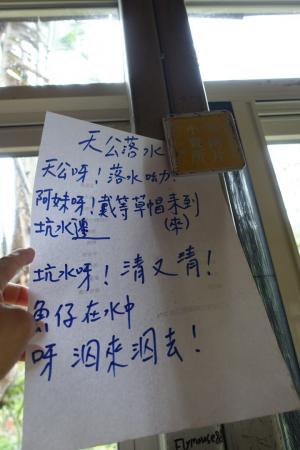 天公落水
天公呀！落水吔力！
阿妹呀！戴等草帽来到
坑水邊 (來)
坑水呀！清又清！
魚仔在水中
呀泅來泅去！
小
Flymouse